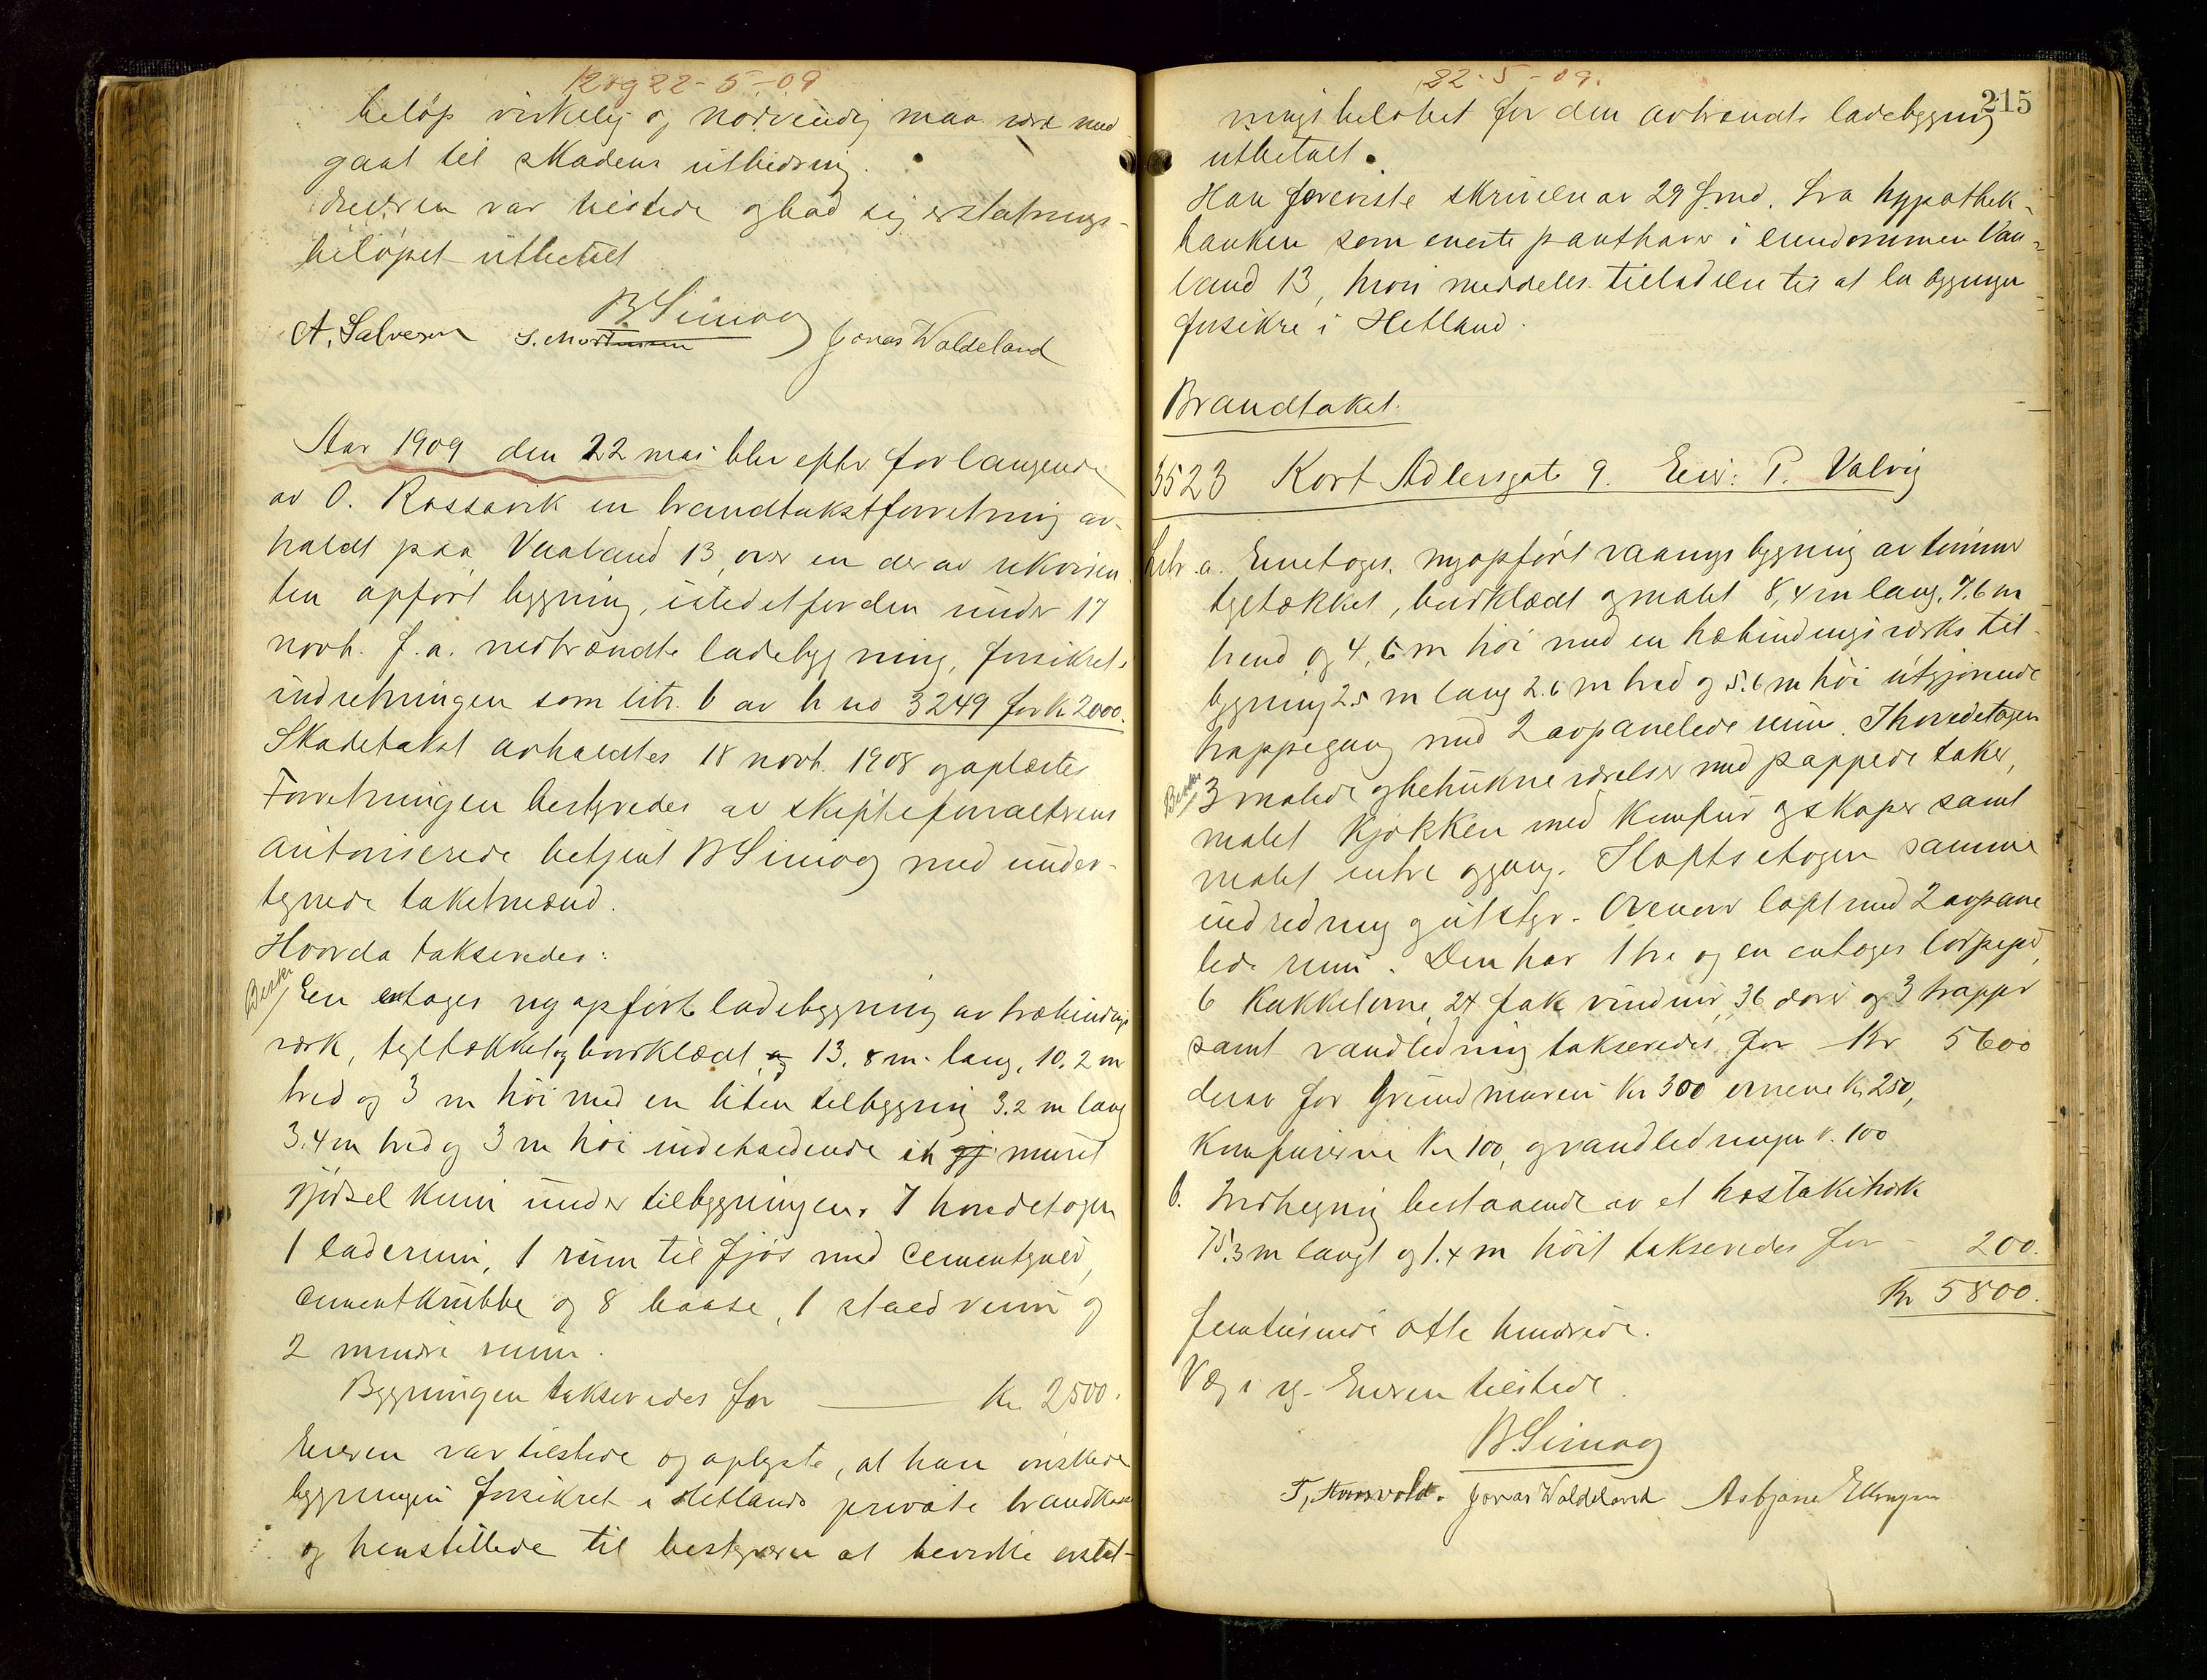 12 og 22-5-09
beløp virkelig og nødvendig maa være med
gaat til skadens utbedring.
Eieren var tilstede og bad sig erstatnings-
beløpet utbetalt
B Simog
A. Salvesen S. Mortensen Jonas Waldeland
Aar 1909 den 22 mai blev efter forlangende
av O. Rossavik en brandtakstforretning av-
holdt paa Vaaland 13, over en der av rekviren
ten opført bygning, istedetfor den under 17
novb. f.a. nedbrændte ladebygning, forsikret i
indretningen som litr. b av h no 3249 for kr 2000.
Skadetakst avholdtes 18 novb. 1908 og oplæstes
Forretningen bestyredes av skifteforvalterens
autoriserede betjent B Simog med under-
tegnede takstmænd.
Hvorda takseredes:
Besk. En entages ny opført ladebygning av træbindings
værk, tegltækket og bordklædt og 13.8 m. lang, 10.2 m
bred og 3 m høi med en liten tilbygning 3.2 m lang
3.4 m bred og 3 m høi indeholdende en gj muret
gjødselkum under tilbygningen. I hovedetagen
1 laderum, 1 rum til fjøs med cementgulv,
cementkrubbe og 8 baase, 1 stald rum og
2 mindre rum.
Bygningen takseredes for — Kr. 2500.
Eieren var tilstede og oplyste, at han ønskede
bygningen forsikret i Hetlands private brandkasse
og henstillede til bestyreren at bevirke erstat-
22-5-09.
215
ningsbeløbet for den avbrændte ladebygning
utbetalt.
Han foreviste skrivelse av 29 f.md. fra hypothek-
banken som eneste panthaver i eiendommen Vaa-
land 13, hvori meddeles tilladelse til at la bygningen
forsikre i Hetland.
Brandtakst.
3523 Kort Adlersgate 9. Eier: P. Valvig
Litr. a. Enetages, nyopført vaaningsbygning av tømmer
tegltækket, bordklædt og malet 8,4 m lang, 7.6 m
bred og 4,6 m høi med en træbindingsværks til-
bygning 2.5 m lang 2.6 m bred og 5.6 m høi utgjørende
trappegang med 2 avpanelede rum. I hovedetagen
Besk. 3 malede og betrukne værelser med pappede taker,
malet kjøkken med komfur og skaper samt
malet entre og gang. I loftsetagen samme
indredning og utstyr. Ovenover loft med 2 avpane
lede rum. Den har 1 tre og en entages lodpipe,
6 kakkelovne, 24 fak vinduer, 36 dører og 3 trapper
samt vandledning takseredes for Kr 5600
derav for grundmuren Kr 300 ovnene Kr 250,
komfurerne Kr 100, og vandledningen k. 100
b. Indhegning bestaaende av et hostakitverk
75.3 m langt og 1.4 m høit takseredes for - 200.
Kr 5800.
femtusinde otte hundrede.
Væg i sg. Eieren tilstede.
B Simog
T. Jonas Waldeland Asbjørn Ellingsen